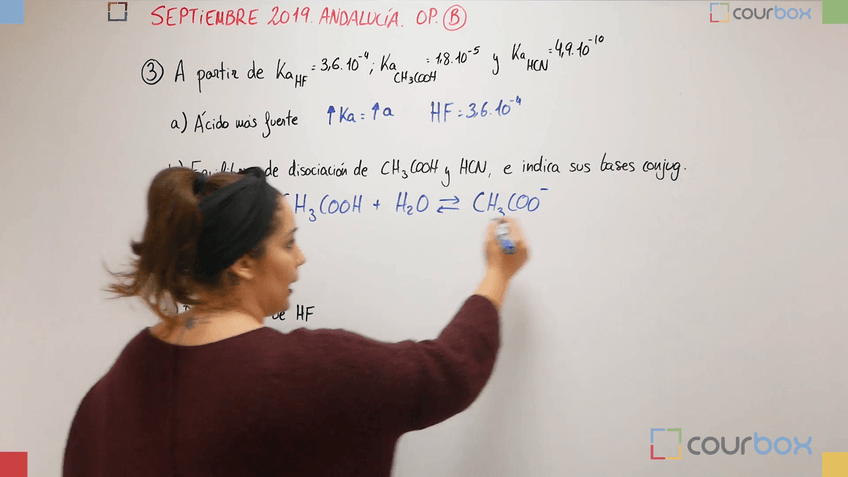 SEPTIEMBRE 2019. ANDALUCÍA. OP. Ⓑ
courbox
③ A partir de Ka HF = 3,6.10⁻⁴; Ka CH₃COOH = 1,8.10⁻⁵ y Ka HCN = 4,9.10⁻¹⁰
a) Ácido más fuerte ↑Ka = ↑a HF = 3,6.10⁻⁴
de disociación de CH₃COOH y HCN, e indica sus bases conjug.
H₃COOH + H₂O ⇄ CH₃COO⁻
HF
courbox